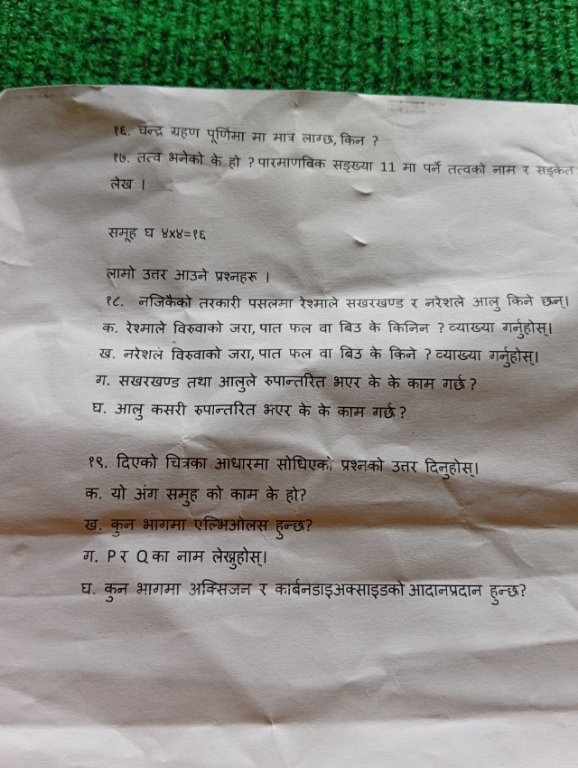 १६. चन्द्र ग्रहण पूर्णिमा मा मात्र लाग्छ, किन ?
१७. तत्व भनेको के हो ? पारमाणविक सङ्ख्या 11 मा पर्ने तत्वको नाम र सङ्केत
लेख ।
समूह घ ४x४=१६
लामो उत्तर आउने प्रश्नहरू ।
१८. नजिकैको तरकारी पसलमा रेश्माले सखरखण्ड र नरेशले आलु किने छन्।
क. रेश्माले विरुवाको जरा, पात फल वा बिउ के किनिन ? व्याख्या गर्नुहोस्।
ख. नरेशले विरुवाको जरा, पात फल वा बिउ के किने ? व्याख्या गर्नुहोस्।
ग. सखरखण्ड तथा आलुले रुपान्तरित भएर के के काम गर्छ ?
घ. आलु कसरी रुपान्तरित भएर के के काम गर्छ ?
१९. दिएको चित्रका आधारमा सोधिएको प्रश्नको उत्तर दिनुहोस्।
क. यो अंग समुह को काम के हो?
ख. कुन भागमा एल्भिओलस हुन्छ?
ग. P र Q का नाम लेख्नुहोस्।
घ. कुन भागमा अक्सिजन र कार्बनडाइअक्साइडको आदानप्रदान हुन्छ?